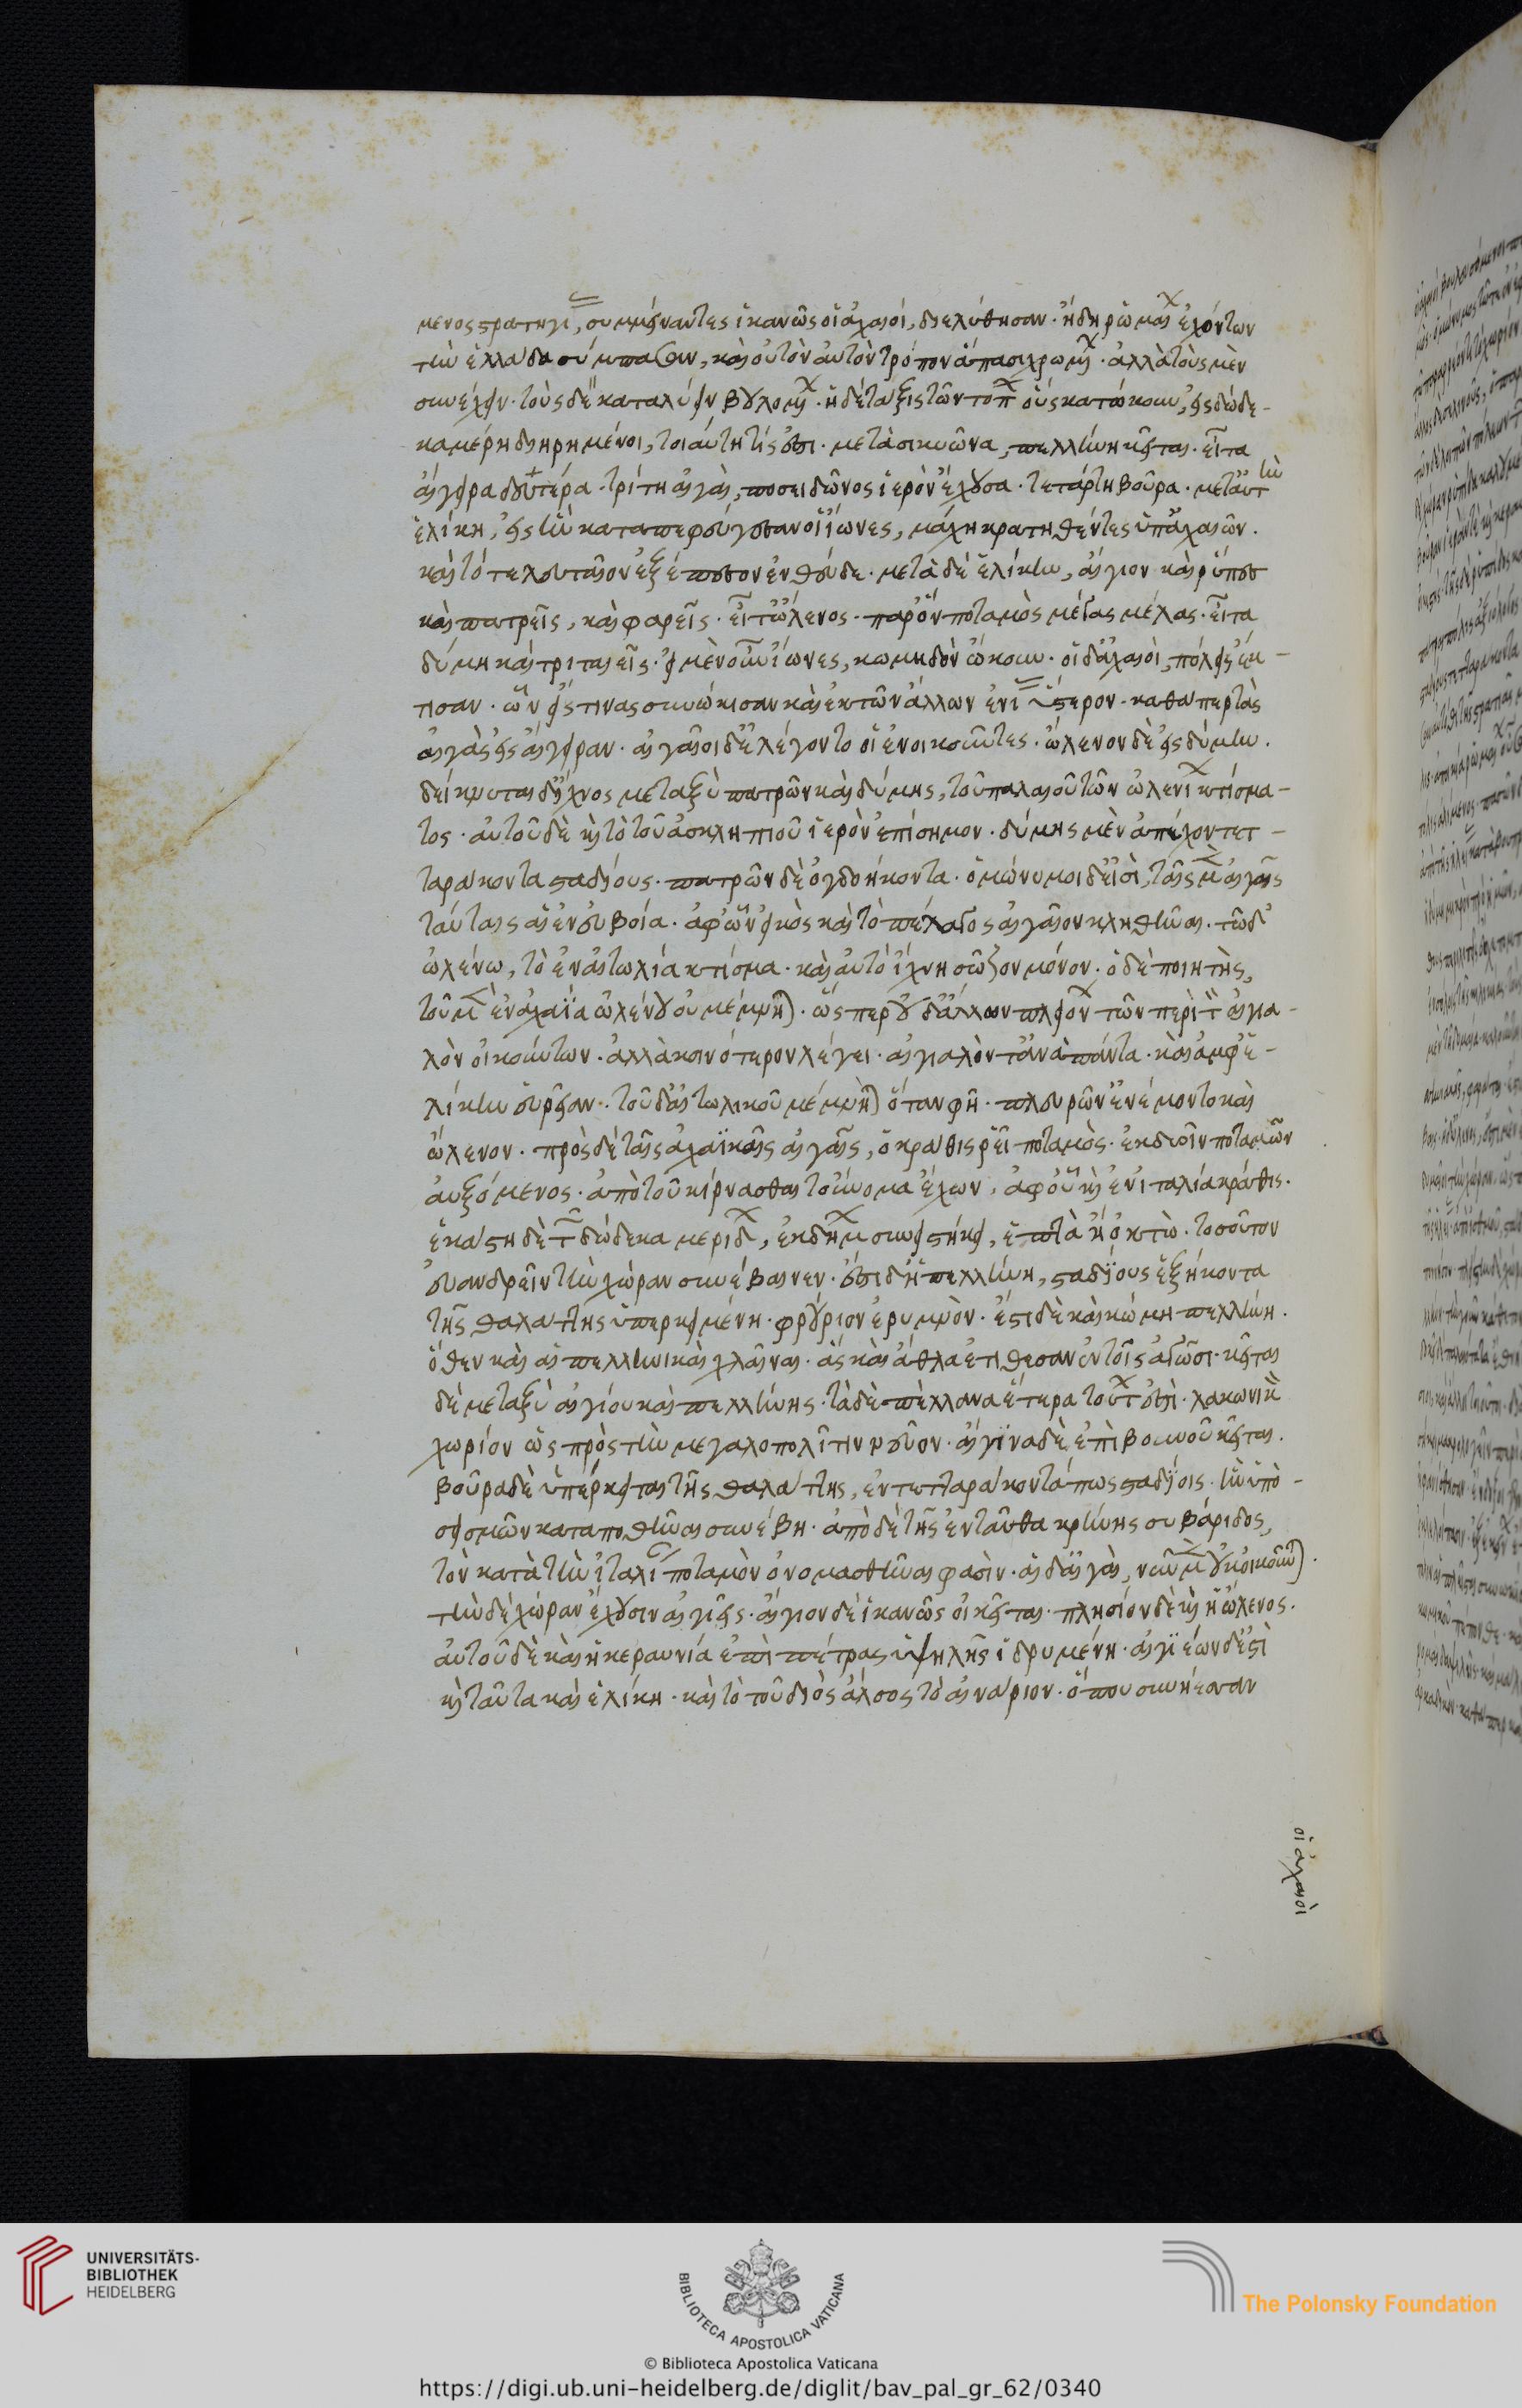 μενος στρατηγία, συμμείναντες ἱκανῶς οἱ ἀχαιοί, διελύθησαν. ἤδη ῥωμαίων ἐχόντων
τὴν ἑλλάδα σύμπασαν, καὶ οὐ τὸν αὐτὸν τρόπον ἅπασι χρωμένων. ἀλλὰ τοὺς μὲν
συνέχειν. τοὺς δὲ καταλύειν βουλομένων. ἡ δὲ τάξις τῶν τόπων οὓς κατώκουν, εἰς δώδε-
κα μέρη διῃρημένοι, τοιαύτη τίς ἐστι. μετὰ σικυῶνα, πελλήνη κεῖται. εἶτα
αἴγειρα δευτέρα. τρίτη αἰγαὶ, ποσειδῶνος ἱερὸν ἔχουσα. τετάρτη βοῦρα. μετ' αὐτὴν
ἑλίκη, εἰς ἣν καταπεφεύγεσαν οἱ ἴωνες, μάχη κρατηθέντες ὑπ' ἀχαιῶν.
καὶ τὸ τελευταῖον ἐξέπεσον ἐνθένδε. μετὰ δὲ ἑλίκην, αἴγιον καὶ ῥύπες
καὶ πατρεῖς, καὶ φαρεῖς. εἶτ' ὤλενος. παρ' ὃν ποταμὸς μέγας μέλας. εἶτα
δύμη καὶ τριταιεῖς. οἱ μὲν οὖν ἴωνες, κωμηδὸν ᾤκουν. οἱ δ' ἀχαιοὶ, πόλεις ἔκ-
τισαν. ὧν εἴς τινας συνῴκισαν καὶ ἐκ τῶν ἄλλων ἐνίας ὕστερον. καθαπερ τὰς
αἰγὰς εἰς αἴγειραν. αἰγαῖοι δ' ἐλέγοντο οἱ ἐνοικοῦντες. ὤλενον δὲ εἰς δύμην.
δείκνυται δ' ἴχνος μεταξὺ πατρῶν καὶ δύμης, τοῦ παλαιοῦ τῶν ὠλενίων κτίσμα-
τος. αὐτοῦ δὲ καὶ τὸ τοῦ ἀσκληπιοῦ ἱερὸν ἐπίσημον. δύμης μὲν ἀπέχον τετ-
ταράκοντα σταδίους. πατρῶν δὲ ὀγδοήκοντα. ὁμώνυμοι δ' εἰσὶ, ταῖς μὲν αἰγαῖς
ταύταις αἱ ἐν εὐβοία. ἀφ' ὧν εἰκὸς καὶ τὸ πέλαγος αἰγαῖον κληθῆναι. τῶ δ'
ὠλένω, τὸ ἐν αἰτωλία κτίσμα. καὶ αὐτὸ ἴχνη σῶζον μόνον. ὁ δὲ ποιητὴς,
τοῦ μὲν ἐν ἀχαΐα ὠλένου οὐ μέμνηται. ὥσπερ οὐδ' ἄλλων πλειόνων τῶν περὶ τὸν αἰγια-
λὸν οἰκούντων. ἀλλὰ κοινότερον λέγει. αἰγιαλόν τ' ἀνὰ πάντα. καὶ ἀμφ' ἑ-
λίκην εὐρεῖαν. τοῦ δ' αἰτωλικοῦ μέμνηται ὅταν φῆ. πλευρῶν' ἐνέμοντο καὶ
ὤλενον. πρὸς δὲ ταῖς ἀχαϊκαῖς αἰγαῖς, ὁ κράθις ῥεῖ ποταμὸς. ἐκ δυοῖν ποταμῶν
αὐξόμενος. ἀπὸ τοῦ κίρνασθαι τοὔνομα ἔχων. ἀφ' οὗ καὶ ἐν ἰταλία κράθις.
ἑκάστη δὲ τῶν δώδεκα μερίδων, ἐκ δήμων συνειστήκει, ἑπτὰ ἢ ὀκτὼ. τοσοῦτον
εὐανδρεῖν τὴν χώραν συνέβαινεν. ἔστι δ' ἡ πελλήνη, σταδίους ἑξήκοντα
τῆς θαλάττης ὑπερκειμένη. φρούριον ἐρυμνὸν. ἔστι δὲ καὶ κώμη πελλήνη.
ὅθεν καὶ αἱ πελληνικαὶ χλαῖναι. ἃς καὶ ἆθλα ἐτίθεσαν ἐν τοῖς ἀγῶσι. κεῖται
δὲ μεταξὺ αἰγίου καὶ πελλήνης. τὰ δὲ πέλλανα ἕτερα τούτων ἐστὶ. λακωνικὸν
χωρίον ὡς πρὸς τὴν μεγαλοπολῖτιν νεῦον. αἴγινα δὲ, ἐπὶ βουνοῦ κεῖται.
βοῦρα δὲ ὑπέρκειται τῆς θαλάττης, ἐν τετταράκοντά πως σταδίοις. ἣν ὑπὸ
σεισμῶν καταποθῆναι συνέβη. ἀπὸ δὲ τῆς ἐνταῦθα κρήνης συβάριδος,
τὸν κατὰ τὴν ἰταλίαν ποταμὸν ὀνομασθῆναι φασὶν. αἱ δ' αἰγαὶ, νῦν μὲν οὐκ οἰκοῦνται.
τὴν δὲ χώραν ἔχουσιν αἰγιεῖς. αἴγιον δὲ ἱκανῶς οἰκεῖται. πλησίον δὲ καὶ ἡ ὤλενος.
αὐτοῦ δὲ καὶ ἡ κεραυνία ἐπὶ πέτρας ὑψηλῆς ἱδρυμένη. αἰγιέων δ' ἐστὶ
καὶ ταῦτα καὶ ἑλίκη. καὶ τὸ τοῦ διὸς ἄλσος τὸ αἰνάριον. ὅπου συνήεσαν
οἱ ἀχαιοὶ
UNIVERSITÄTS-
BIBLIOTHEK
HEIDELBERG
BIBLIOTECA APOSTOLICA VATICANA
The Polonsky Foundation
© Biblioteca Apostolica Vaticana
https://digi.ub.uni-heidelberg.de/diglit/bav_pal_gr_62/0340